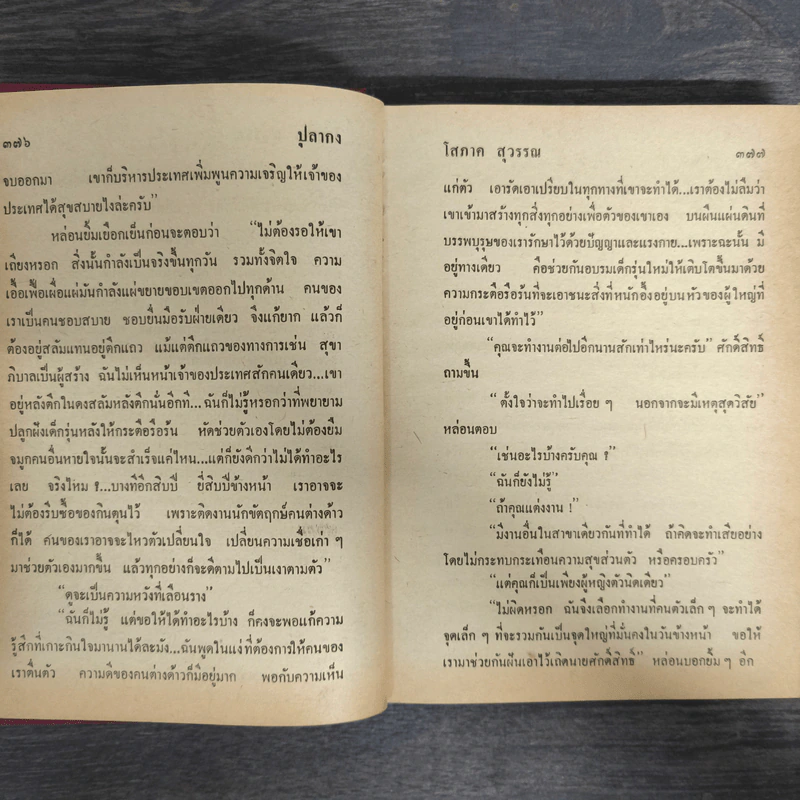 ๓๗๖ ปุลากง
จบออกมา เขาก็บริหารประเทศเพิ่มพูนความเจริญให้เจ้าของ
ประเทศได้สุขสบายไงล่ะครับ”
หล่อนยิ้มเยือกเย็นก่อนจะตอบว่า “ไม่ต้องรอให้เขา
เถียงหรอก สิ่งนั้นกำลังเป็นจริงขึ้นทุกวัน รวมทั้งจิตใจ ความ
เอื้อเฟื้อเผื่อแผ่มันกำลังแผ่ขยายขอบเขตออกไปทุกด้าน คนของ
เราเป็นคนชอบสบาย ชอบยื่นมือรับฝ่ายเดียว จึงแก้ยาก แล้วก็
ต้องอยู่สลัมแทนอยู่ตึกแถว แม้แต่ตึกแถวของทางการเช่น สุขา
ภิบาลเป็นผู้สร้าง ฉันไม่เห็นหน้าเจ้าของประเทศสักคนเดียว...เขา
อยู่หลังตึกในดงสลัมหลังตึกนั่นอีกที...ฉันก็ไม่รู้หรอกว่าที่พยายาม
ปลูกฝังเด็กรุ่นหลังให้กระตือรือร้น หัดช่วยตัวเองโดยไม่ต้องยืม
จมูกคนอื่นหายใจนั้นจะสำเร็จแค่ไหน...แต่ก็ยังดีกว่าไม่ได้ทำอะไร
เลย จริงไหม ?...บางทีอีกสิบปี ยี่สิบปีข้างหน้า เราอาจจะ
ไม่ต้องรีบซื้อของกินตุนไว้ เพราะติดงานนักขัตฤกษ์คนต่างด้าว
ก็ได้ คนของเราอาจจะไหวตัวเปลี่ยนใจ เปลี่ยนความเชื่อเก่า ๆ
มาช่วยตัวเองมากขึ้น แล้วทุกอย่างก็จะดีตามไปเป็นเงาตามตัว”
“ดูจะเป็นความหวังที่เลือนราง”
“ฉันก็ไม่รู้ แต่ขอให้ได้ทำอะไรบ้าง ก็คงจะพอแก้ความ
รู้สึกที่เกาะกินใจมานานได้ละมัง...ฉันพูดในแง่ที่ต้องการให้คนของ
เราตื่นตัว ความดีของคนต่างด้าวก็มีอยู่มาก พอกับความเห็น
โสภาค สุวรรณ ๓๗๗
แก่ตัว เอารัดเอาเปรียบในทุกทางที่เขาจะทำได้...เราต้องไม่ลืมว่า
เขาเข้ามาสร้างทุกสิ่งทุกอย่างเพื่อตัวของเขาเอง บนผืนแผ่นดินที่
บรรพบุรุษของเรารักษาไว้ด้วยปัญญาและแรงกาย...เพราะฉะนั้น มี
อยู่ทางเดียว คือช่วยกันอบรมเด็กรุ่นใหม่ให้เติบโตขึ้นมาด้วย
ความกระตือรือร้นที่จะเอาชนะสิ่งที่หนักอึ้งอยู่บนหัวของผู้ใหญ่ที่
อยู่ก่อนเขาได้ทำไว้”
“คุณจะทำงานต่อไปอีกนานสักเท่าไหร่นะครับ” ศักดิ์สิทธิ์
ถามขึ้น
“ตั้งใจว่าจะทำไปเรื่อย ๆ นอกจากจะมีเหตุสุดวิสัย”
หล่อนตอบ
“เช่นอะไรบ้างครับคุณ ?”
“ฉันก็ยังไม่รู้”
“ถ้าคุณแต่งงาน !”
“มีงานอื่นในสาขาเดียวกันที่ทำได้ ถ้าคิดจะทำเสียอย่าง
โดยไม่กระทบกระเทือนความสุขส่วนตัว หรือครอบครัว”
“แต่คุณก็เป็นเพียงผู้หญิงตัวนิดเดียว”
“ไม่ผิดหรอก ฉันจึงเลือกทำงานที่คนตัวเล็ก ๆ จะทำได้
จุดเล็ก ๆ ที่จะรวมกันเป็นจุดใหญ่ที่มั่นคงในวันข้างหน้า ขอให้
เรามาช่วยกันฝันเอาไว้เถิดนายศักดิ์สิทธิ์” หล่อนบอกยิ้ม ๆ อีก